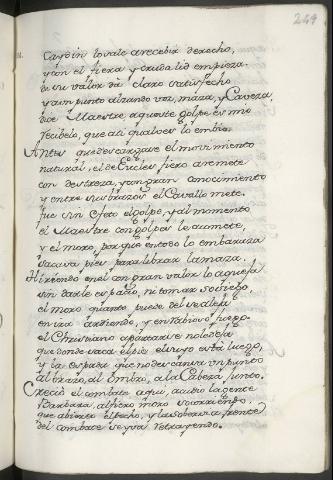 249
Caydin lo sale a recebir derecho,
y con el fiera y cruda lid empieza.
de su valor dà claro satisfecho
y a un punto alzando voz, maza, y Caveza,
dice Maestre, aqueste golpe es mio
recibelo, que acà qual ves lo embio.
Antes que descargare el movimiento
natural, el de Eucles fiero arremete
con destreza, y con gran conocimiento
y entre sus brazos el Cavallo mete.
fue sin efeto el golpe, y al momento
el Maestre con golpes le acomete,
y el moro, por que en todo lo embaraza
saca un pies para librar la maza.
Hiriendo en el con gran valor lo aqueja
sin darle espacio, ni tomar sosiego
el moro quanto puede del se aleja
en ira ardiendo, y en rabioso fuego.
el Christiano apartarse no le deja
que donde saca el pie el suyo està luego,
y la espada que no descansa un punto
al brazo, al ombro, a la Cabeza junto.
Creciò el combate aqui, acudio la gente
Barbara, al fiero moro socorriendo.
que abierto el pecho, y la sobervia frente
del combate se yva retrayendo.